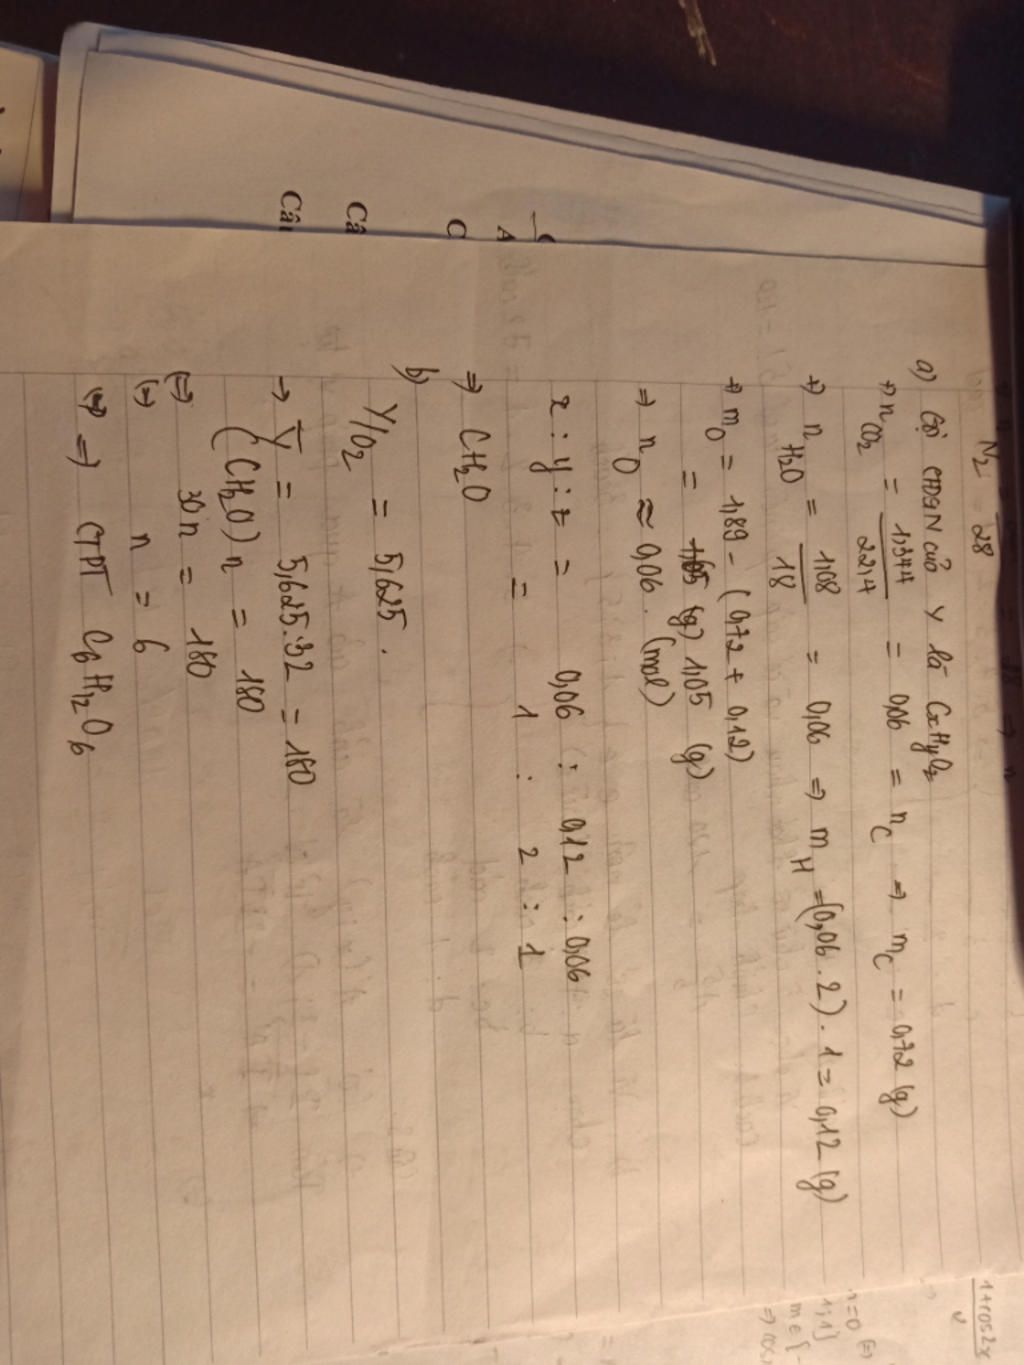 N2
28
a) Gọi CTĐGN của Y là CxHyOz
+) nCO2 = 1,344 / 22,4 = 0,06 = nC => mC = 0,72 (g)
+) nH2O = 1,08 / 18 = 0,06 => mH = (0,06.2).1 = 0,12 (g)
+) mO = 1,89 - (0,72 + 0,12)
= 1,05 (g)
=> nO ≈ 0,06. (mol)
x : y : z = 0,06 : 0,12 : 0,06
= 1 : 2 : 1
=> CH2O
b) Y/O2 = 5,625.
→ Y = 5,625.32 = 180
(CH2O)n = 180
(=) 30n = 180
(=) n = 6
=> CTPT C6H12O6
Câ
C
A
1+cos2x
n=0 (=)
1;1]
m ∈ [-